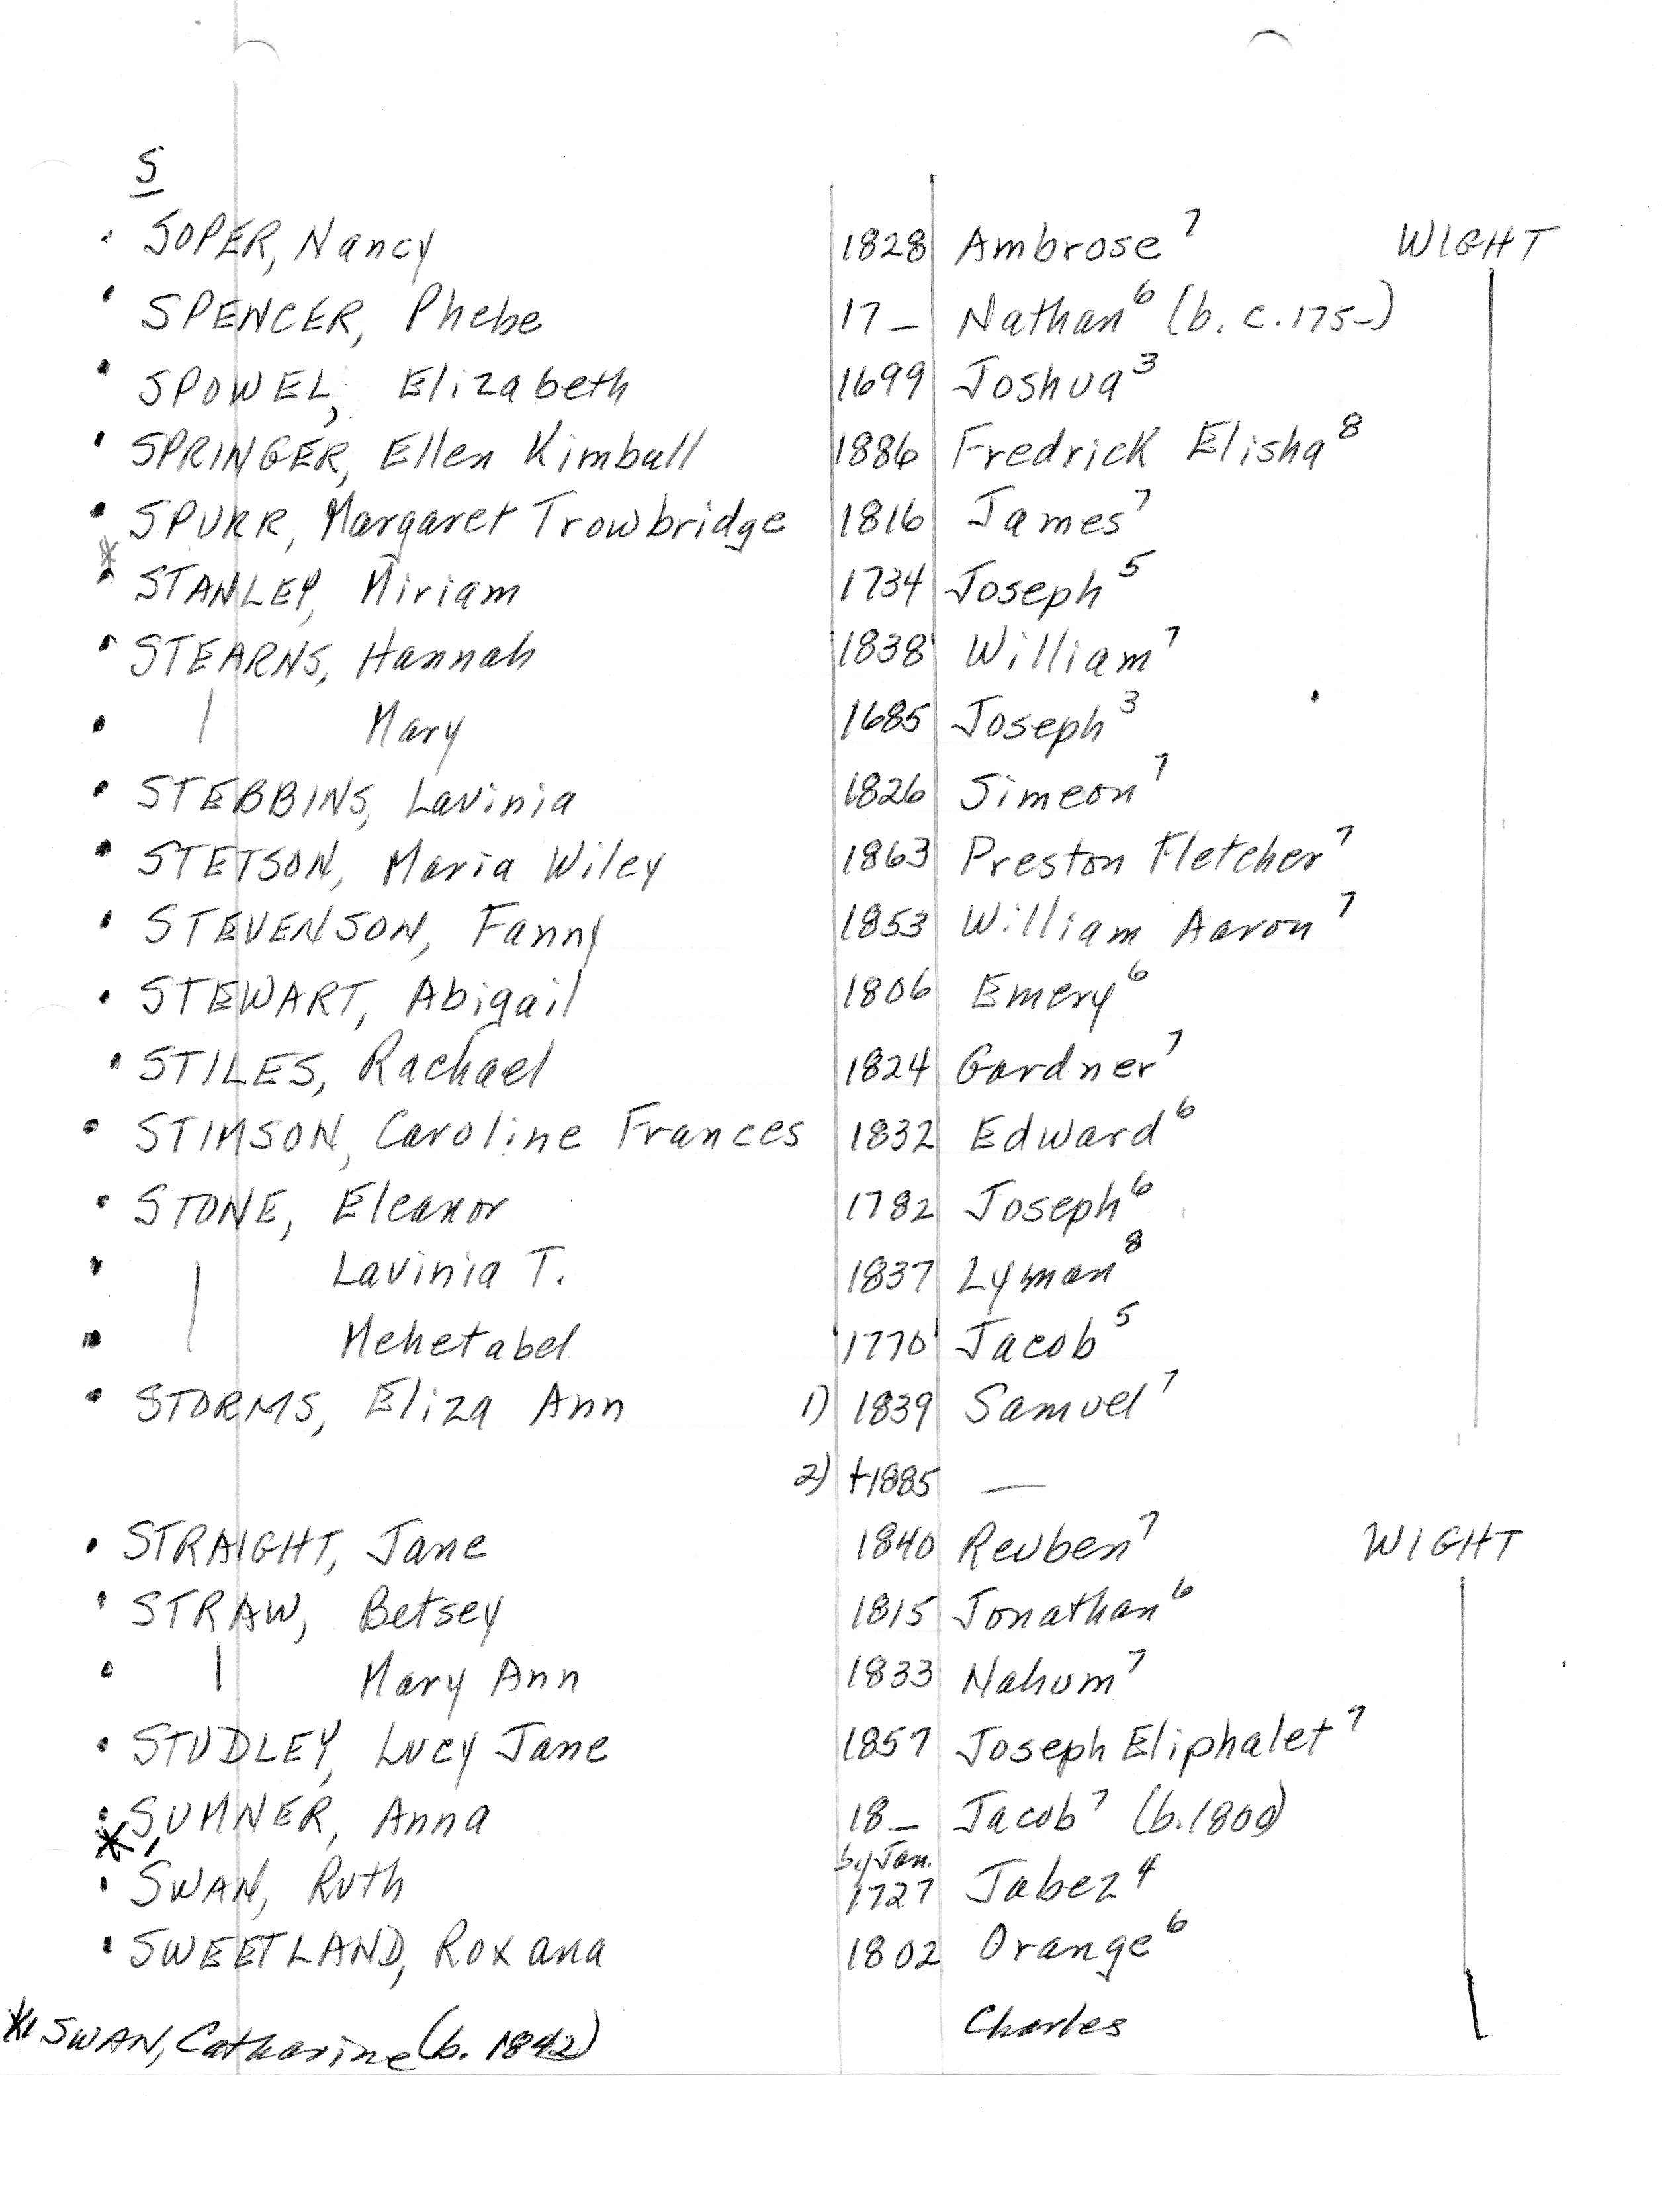 S
SOPER, Nancy 1828 Ambrose⁷ WIGHT
SPENCER, Phebe 17_ Nathan⁶ (b. c. 175-)
SPOWEL, Elizabeth 1699 Joshua³
SPRINGER, Ellen Kimball 1886 Fredrick Elisha⁸
SPURR, Margaret Trowbridge 1816 James⁷
* STANLEY, Miriam 1734 Joseph⁵
STEARNS, Hannah 1838 William⁷
| Mary 1685 Joseph³
STEBBINS, Lavinia 1826 Simeon⁷
STETSON, Maria Wiley 1863 Preston Fletcher⁷
STEVENSON, Fanny 1853 William Aaron⁷
STEWART, Abigail 1806 Emery⁶
STILES, Rachael 1824 Gardner⁷
STIMSON, Caroline Frances 1832 Edward⁶
STONE, Eleanor 1782 Joseph⁶
| Lavinia T. 1837 Lyman⁸
| Mehetabel 1770 Jacob⁵
STORMS, Eliza Ann 1) 1839 Samuel⁷
2) +1885 —
STRAIGHT, Jane 1840 Reuben⁷ WIGHT
STRAW, Betsey 1815 Jonathan⁶
| Mary Ann 1833 Nahum⁷
STUDLEY, Lucy Jane 1857 Joseph Eliphalet⁷
SUMNER, Anna 18_ Jacob⁷ (b. 1800)
* SWAN, Ruth by Jan. 1727 Jabez⁴
SWEETLAND, Roxana 1802 Orange⁶
* SWAN, Catharine (b. 1842) Charles